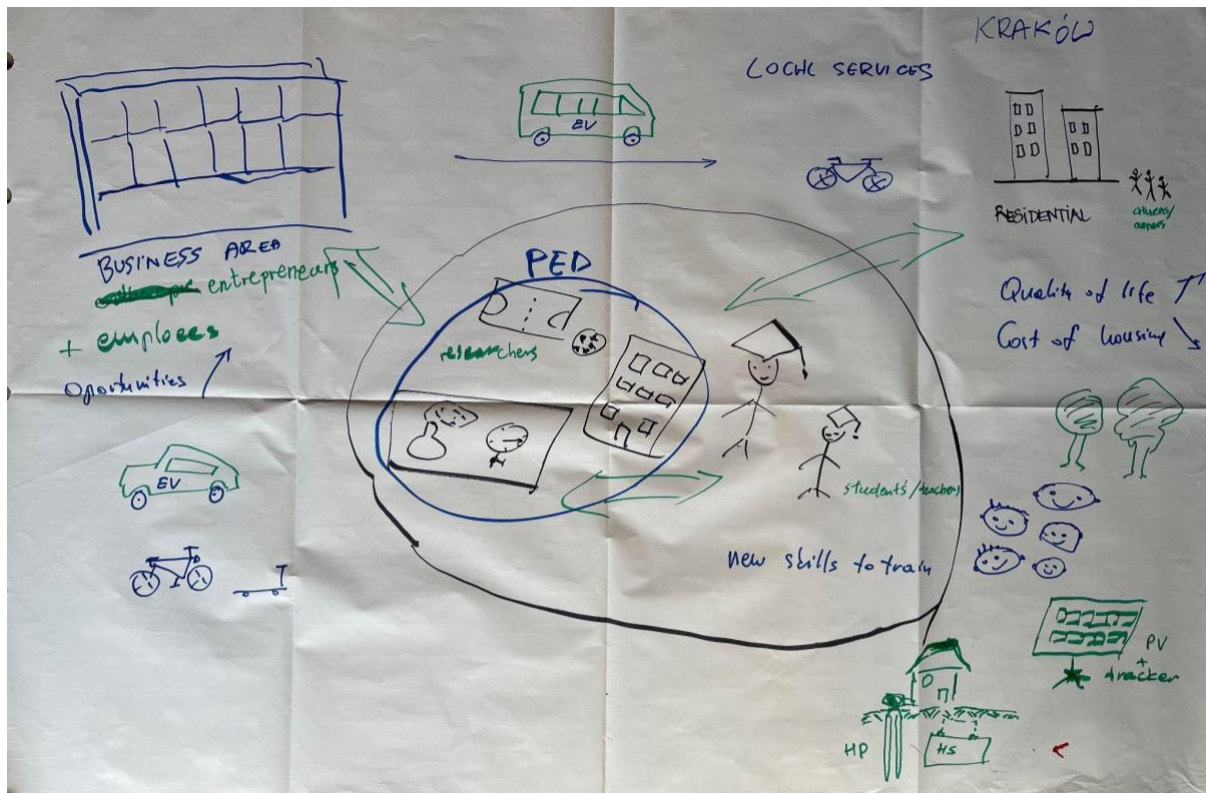 KRAKÓW
LOCAL SERVICES
EV
RESIDENTIAL
citizens/
owners
BUSINESS AREA
entrepreneurs
+ emploees
Oportunities
PED
researchers
Quality of life
Cost of housing
EV
students/teachers
new skills to train
PV
+
tracker
HP
HS